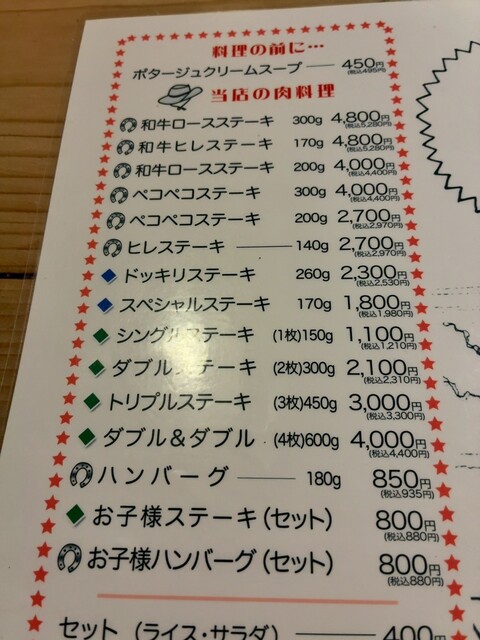 料理の前に…
ポタージュクリームスープ 450円
(税込495円)
当店の肉料理
和牛ロースステーキ 300g 4,800円
(税込5,280円)
和牛ヒレステーキ 170g 4,800円
(税込5,280円)
和牛ロースステーキ 200g 4,000円
(税込4,400円)
ペコペコステーキ 300g 4,000円
(税込4,400円)
ペコペコステーキ 200g 2,700円
(税込2,970円)
ヒレステーキ 140g 2,700円
(税込2,970円)
ドッキリステーキ 260g 2,300円
(税込2,530円)
スペシャルステーキ 170g 1,800円
(税込1,980円)
シングルステーキ (1枚)150g 1,100円
(税込1,210円)
ダブルステーキ (2枚)300g 2,100円
(税込2,310円)
トリプルステーキ (3枚)450g 3,000円
(税込3,300円)
ダブル&ダブル (4枚)600g 4,000円
(税込4,400円)
ハンバーグ 180g 850円
(税込935円)
お子様ステーキ(セット) 800円
(税込880円)
お子様ハンバーグ(セット) 800円
(税込880円)
セット (ライス・サラダ) 400円